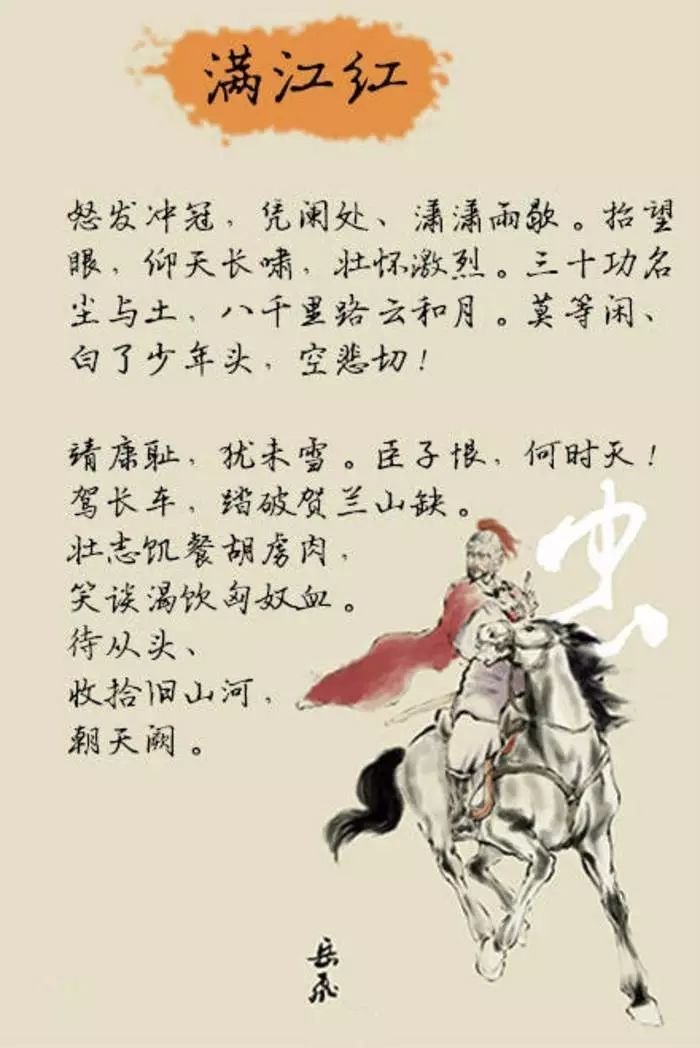 满江红
怒发冲冠，凭阑处、潇潇雨歇。抬望
眼，仰天长啸，壮怀激烈。三十功名
尘与土，八千里路云和月。莫等闲、
白了少年头，空悲切！
靖康耻，犹未雪。臣子恨，何时灭！
驾长车，踏破贺兰山缺。
壮志饥餐胡虏肉，
笑谈渴饮匈奴血。
待从头、
收拾旧山河，
朝天阙。
忠
岳飞